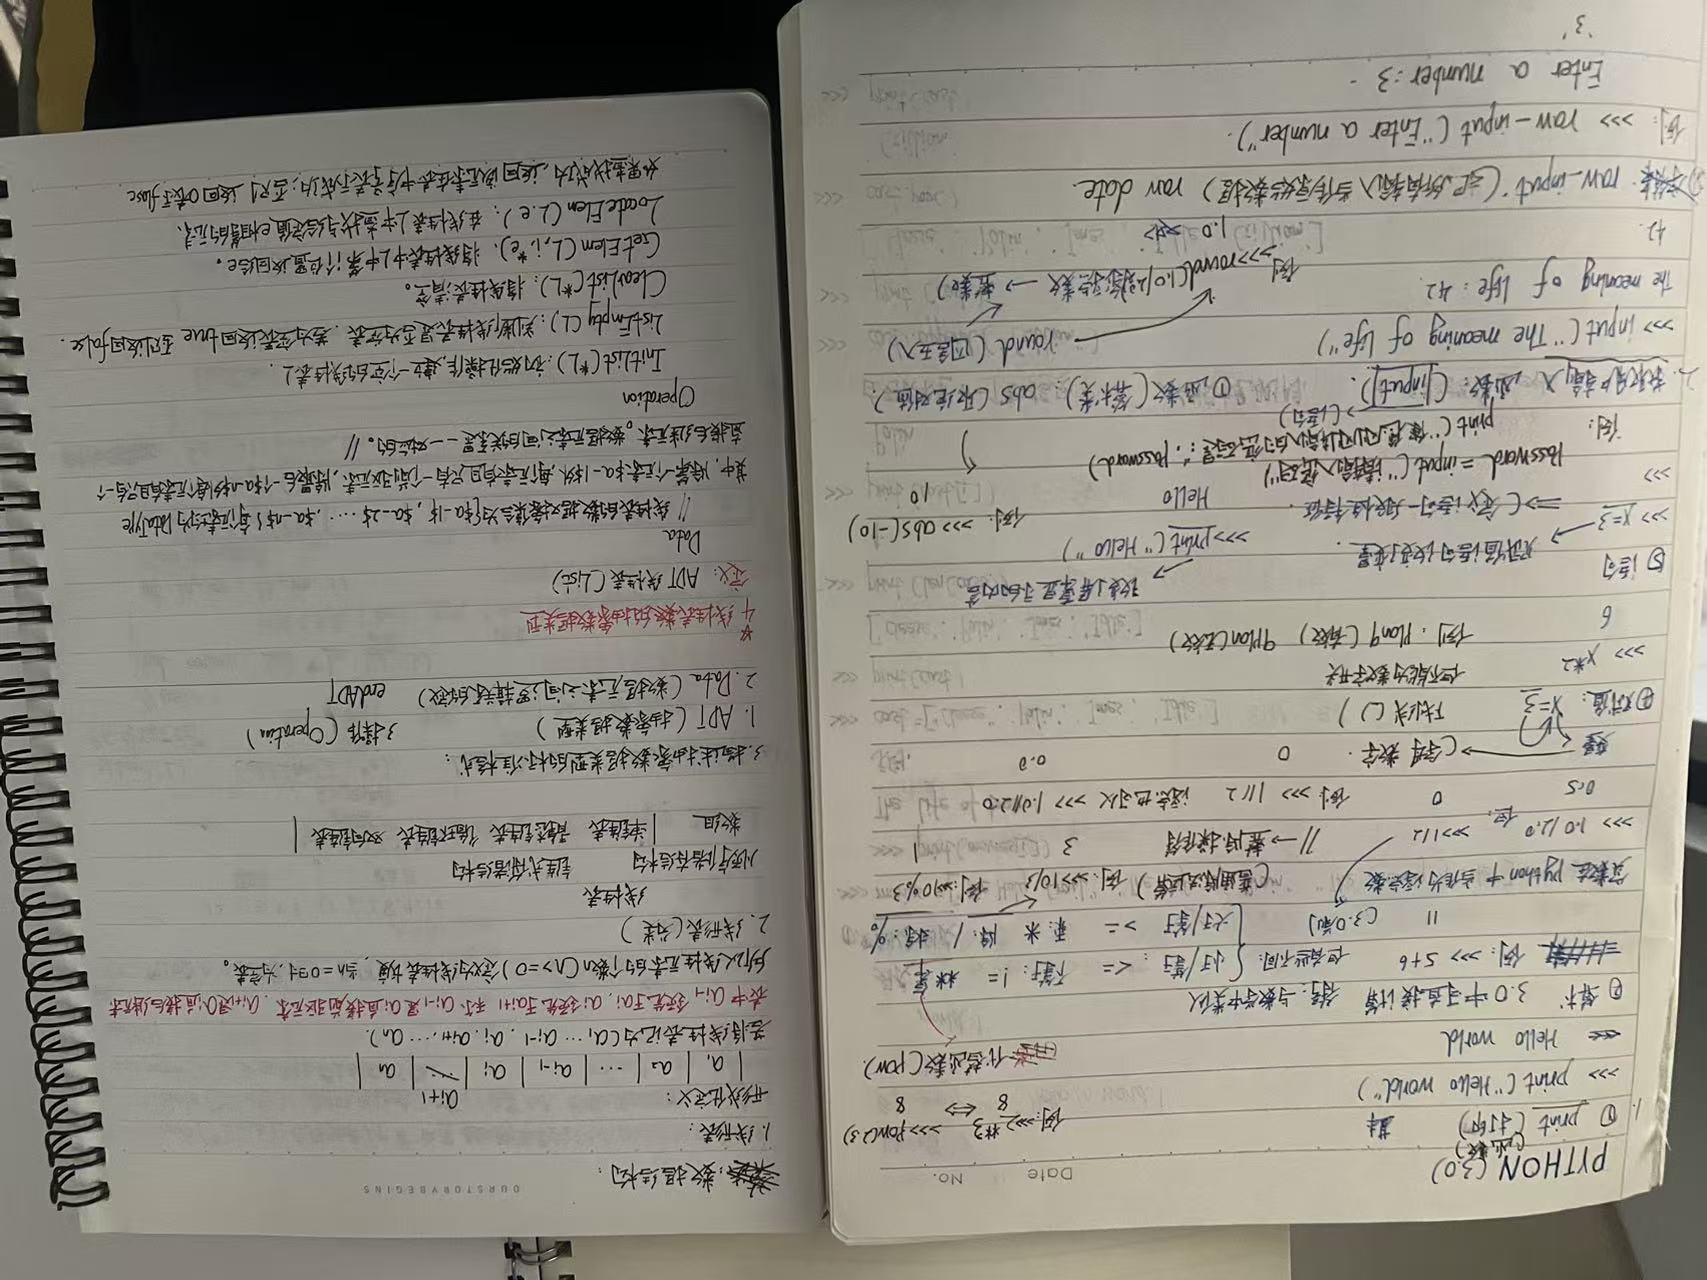 PYTHON (3.0)
Date
No.
1.
① print (打印)
(函数)
>>> print ("Hello world")
Hello world
例: >>> 2**3 ⇔ >>> pow(2,3)
8 8
代替函数 (pow)
② 算术 3.0中可直接计算 符号:与数学中类似
例: >>> 5+6 但有些不同:
11
小于/等于: <= 不等于: !=
大于/等于 >= 乘: * 除: / %
实数在python中当作为浮点数
>>> 1.0/2.0 但, >>> 1/2
0.5 0
例: >>> 10/3 例: >>> 10%3
// → 整除操作符 3 1
例: >>> 1//2 浮点也可以 >>> 1.0//2.0
0 0.0
变量 (字母 数字.
下划线(_)
但不能为数字开头
④ 赋值: x=3
>>> x*2
6
例: Plan9 (有效) 9Plan (无效)
⑤ 语句
>>> x=3 → 赋值语句改变变量.
改变屏幕显示的内容
>>> print ("Hello")
Hello
例: >>> abs(-10)
10
>>> Password = input ("请输入密码")
例: print ("您刚刚输入的密码是:", Password)
2. 获取用户输入 函数: (input).
① 函数 (算术类): abs (取绝对值)
round (四舍五入)
>>> input ("The meaning of life")
The meaning of life: 42
42.
raw_input (把所有输入当作原始数据) raw date.
例: >>> raw_input ("Enter a number").
Enter a number: 3
'3'
OURSTORYBEGINS
数据结构:
1. 线形表:
形式化定义:
ai+1
| a1 | a2 | ... | ai-1 | ai | | an |
若将线性表记为(a1 ... ai-1, ai, ai+1, ... an).
表中ai-1领先于ai, ai领先于ai+1 称ai-1是ai直接前驱元素, ai+1是ai直接后继元素
所以线性元素的个数n(n>=0)定义为线性表长度, 当n=0时, 为空表。
2. 线形表(分类)
线性表
顺序存储结构 链式存储结构
数组 | 单链表 静态链表 循环链表 双向链表 |
3. 描述抽象数据类型的标准格式:
1. ADT (抽象数据类型) 3. 操作 (Operation)
2. Data (数据元素之间逻辑关系的定义) endADT
☆
4 线性表的抽象数据类型
定义: ADT 线性表 (List)
Data
// 线性表的数据对象集合为{$a-1$, $a-2$, ......, $a-n$} 每个元素类型为DataType
其中, 除第一个元素$a-1$外, 每个元素有且只有一个前驱元素, 除最后一个$a-n$外每个元素有且只有一个
直接后继元素。数据元素之间的关系是一一对应的。//
Operation
InitList (*L): 初始化操作, 建立一个空的线性表L.
ListEmpty (L): 判断线性表是否为空表, 若为空表返回true 否则返回false.
ClearList (*L): 将线性表清空。
GetElem (L, i, *e) 将线性表中L中第i个位置返回给e。
LocateElem (L, e): 在线性表L中查找与给定值e相等的元素,
如果查找成功, 返回该元素在表中序号表示成功; 否则, 返回0表示false.